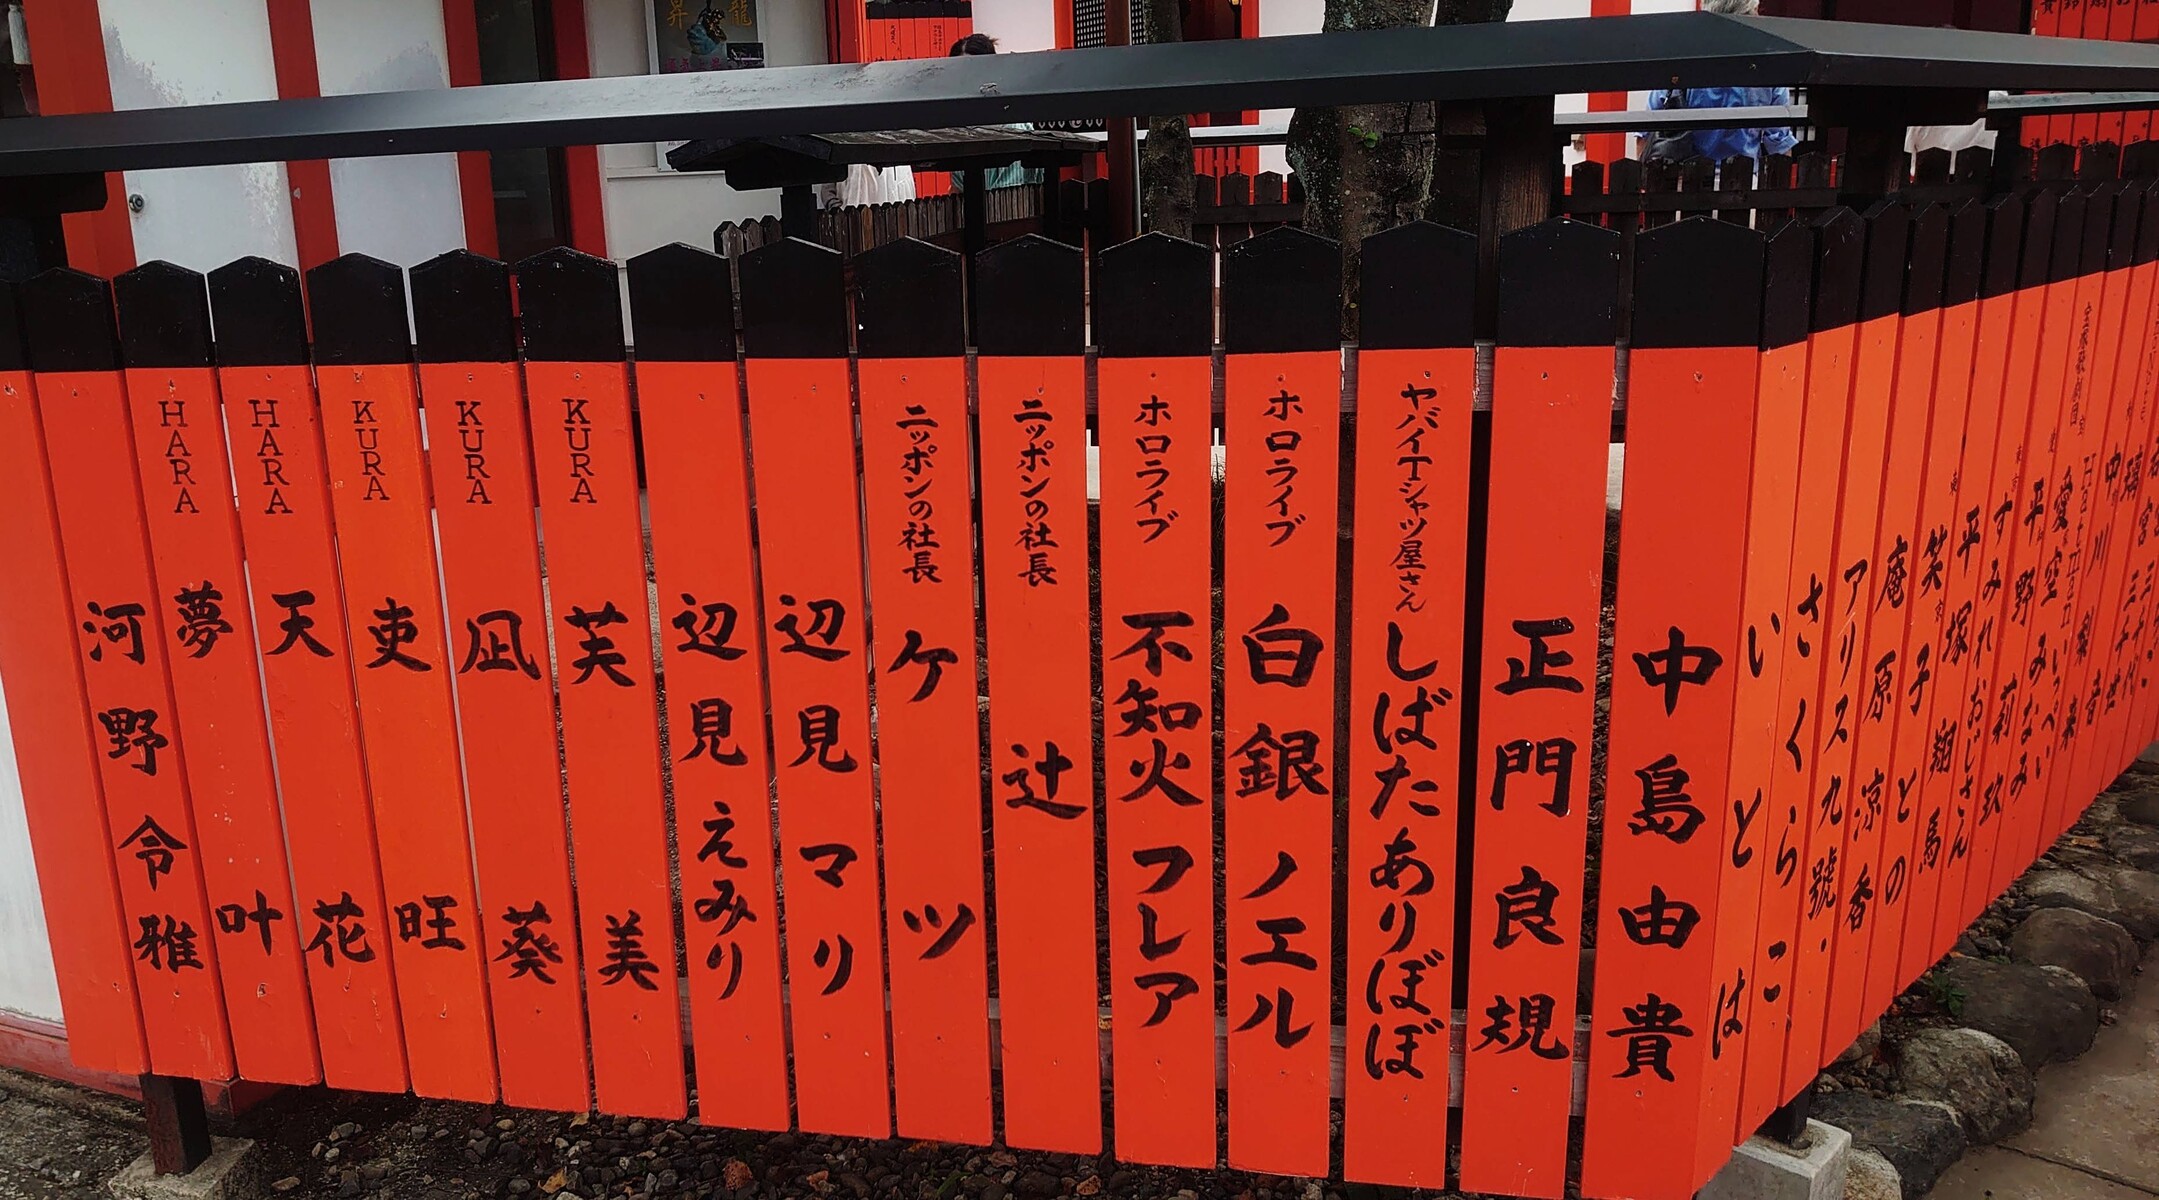 愛空みなみ
平野莉玖
すみれおじさん
平塚翔馬
笑子との
庵原涼香
アリス九號.
さくらこ
いとは
中島由貴
正門良規
ヤバイTシャツ屋さん しばたありぼぼ
ホロライブ 白銀ノエル
ホロライブ 不知火フレア
ニッポンの社長 辻
ニッポンの社長 ケツ
辺見マリ
辺見えみり
KURA 芙美
KURA 凪葵
KURA 吏旺
HARA 天花
HARA 夢叶
河野令雅
昇龍